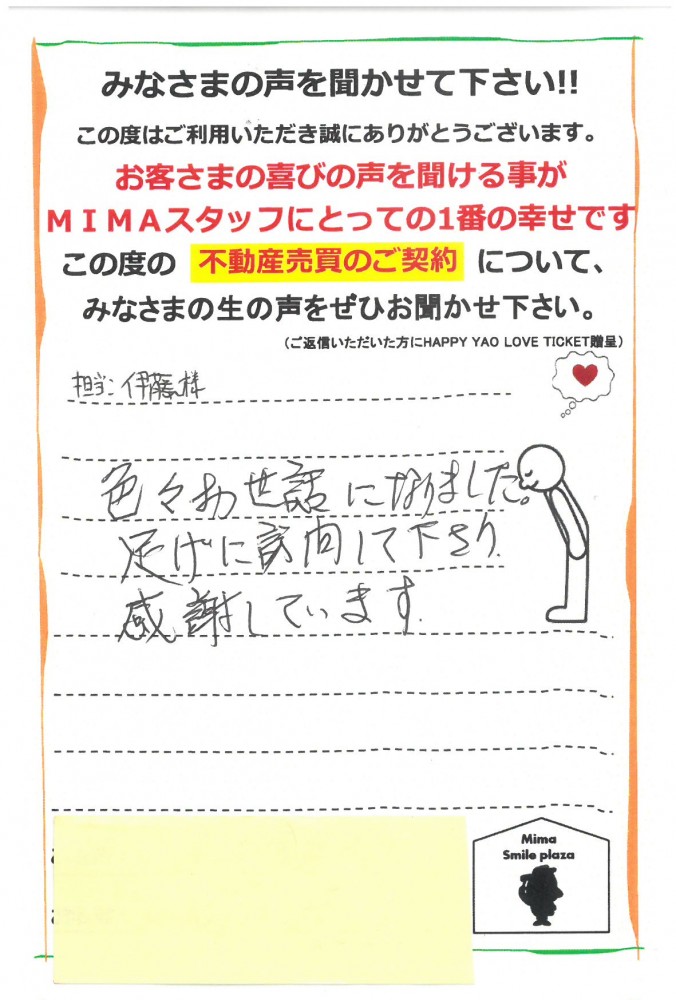 みなさまの声を聞かせて下さい!!
この度はご利用いただき誠にありがとうございます。
お客さまの喜びの声を聞ける事が
ＭＩＭＡスタッフにとっての1番の幸せです
この度の 不動産売買のご契約 について、
みなさまの生の声をぜひお聞かせ下さい。
（ご返信いただいた方にHAPPY YAO LOVE TICKET贈呈）
担当：伊藤様
色々お世話になりました。
足げに訪問して下さり
感謝しています.
Mima
Smile plaza